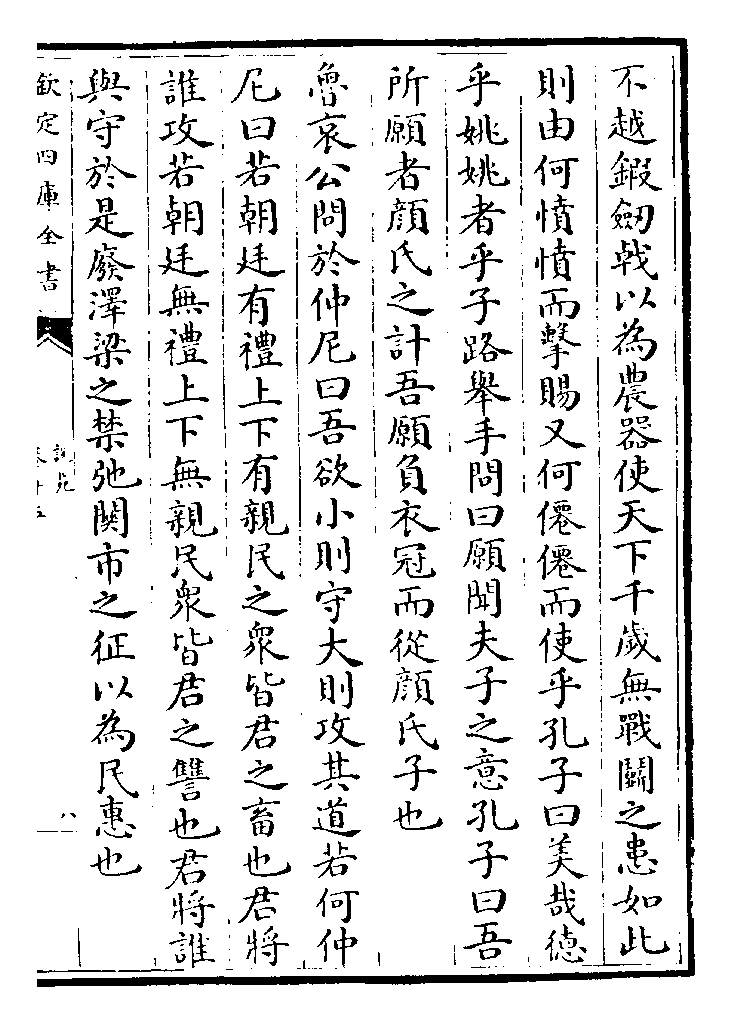 不越鍜劒㦸以為農器使天下千歳無戰鬬之患如此
則由何憤憤而擊賜又何僊僊而使乎孔子曰美哉徳
乎姚姚者乎子路舉手問曰願聞夫子之意孔子曰吾
所願者顔氏之計吾願負衣冠而從顔氏子也
魯哀公問於仲尼曰吾欲小則守大則攻其道若何仲
尼曰若朝廷有禮上下有親民之衆皆君之畜也君將
誰攻若朝廷無禮上下無親民衆皆君之讐也君將誰
與守於是廢澤梁之禁弛闗市之征以為民惠也
欽定四庫全書
說苑
卷十五
八